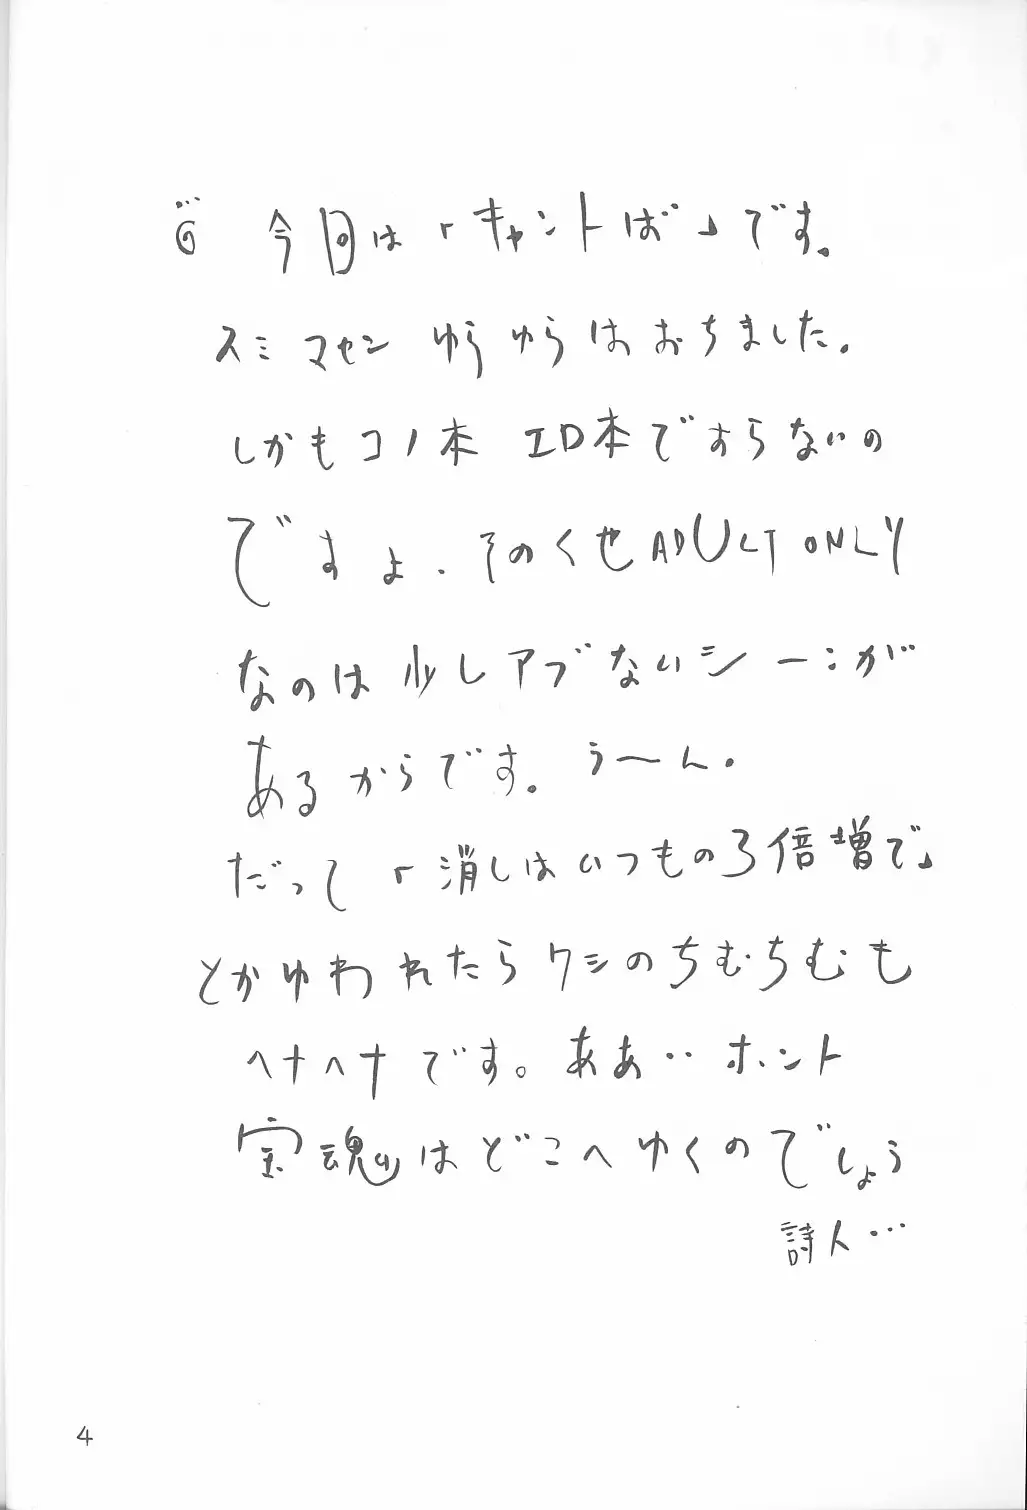 今回は「キャントば」です。
スミマセン ゆうゆらはおちました。
しかもコノ本 エロ本ですらないの
ですよ．そのくせADULT ONLY
なのは少しアブないシーンが
あるからです。うーん．
だって「消しはいつもの3倍増で」
とかゆわれたらワシのちむちむも
ヘナヘナです。ああ‥ホント
宝魂はどこへゆくのでしょう
詩人…
4